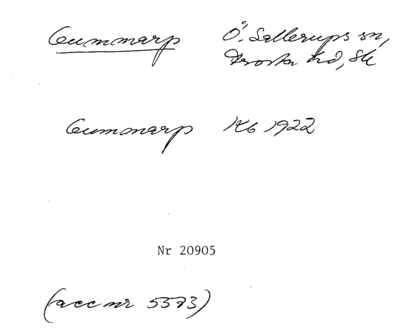 Gummarp Ö. Sallerups sn,
Frosta hd, Sk
Gummarp Kb 1922
Nr 20905
(acc nr 5573)